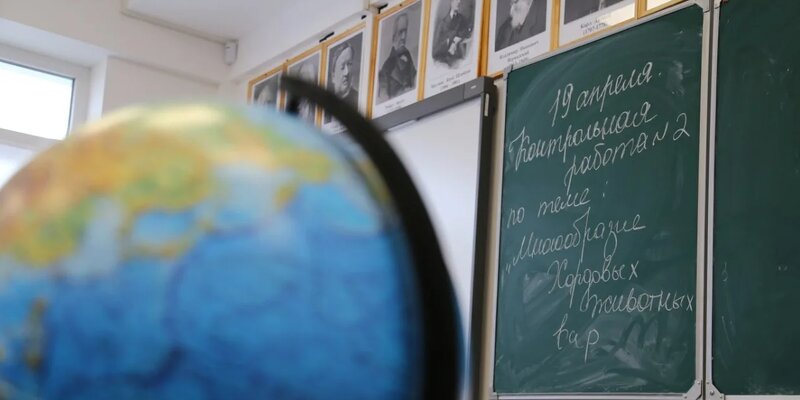 19 апреля.
Контрольная
работа №2
по теме:
"Многообразие
Хордовых
животных
вар